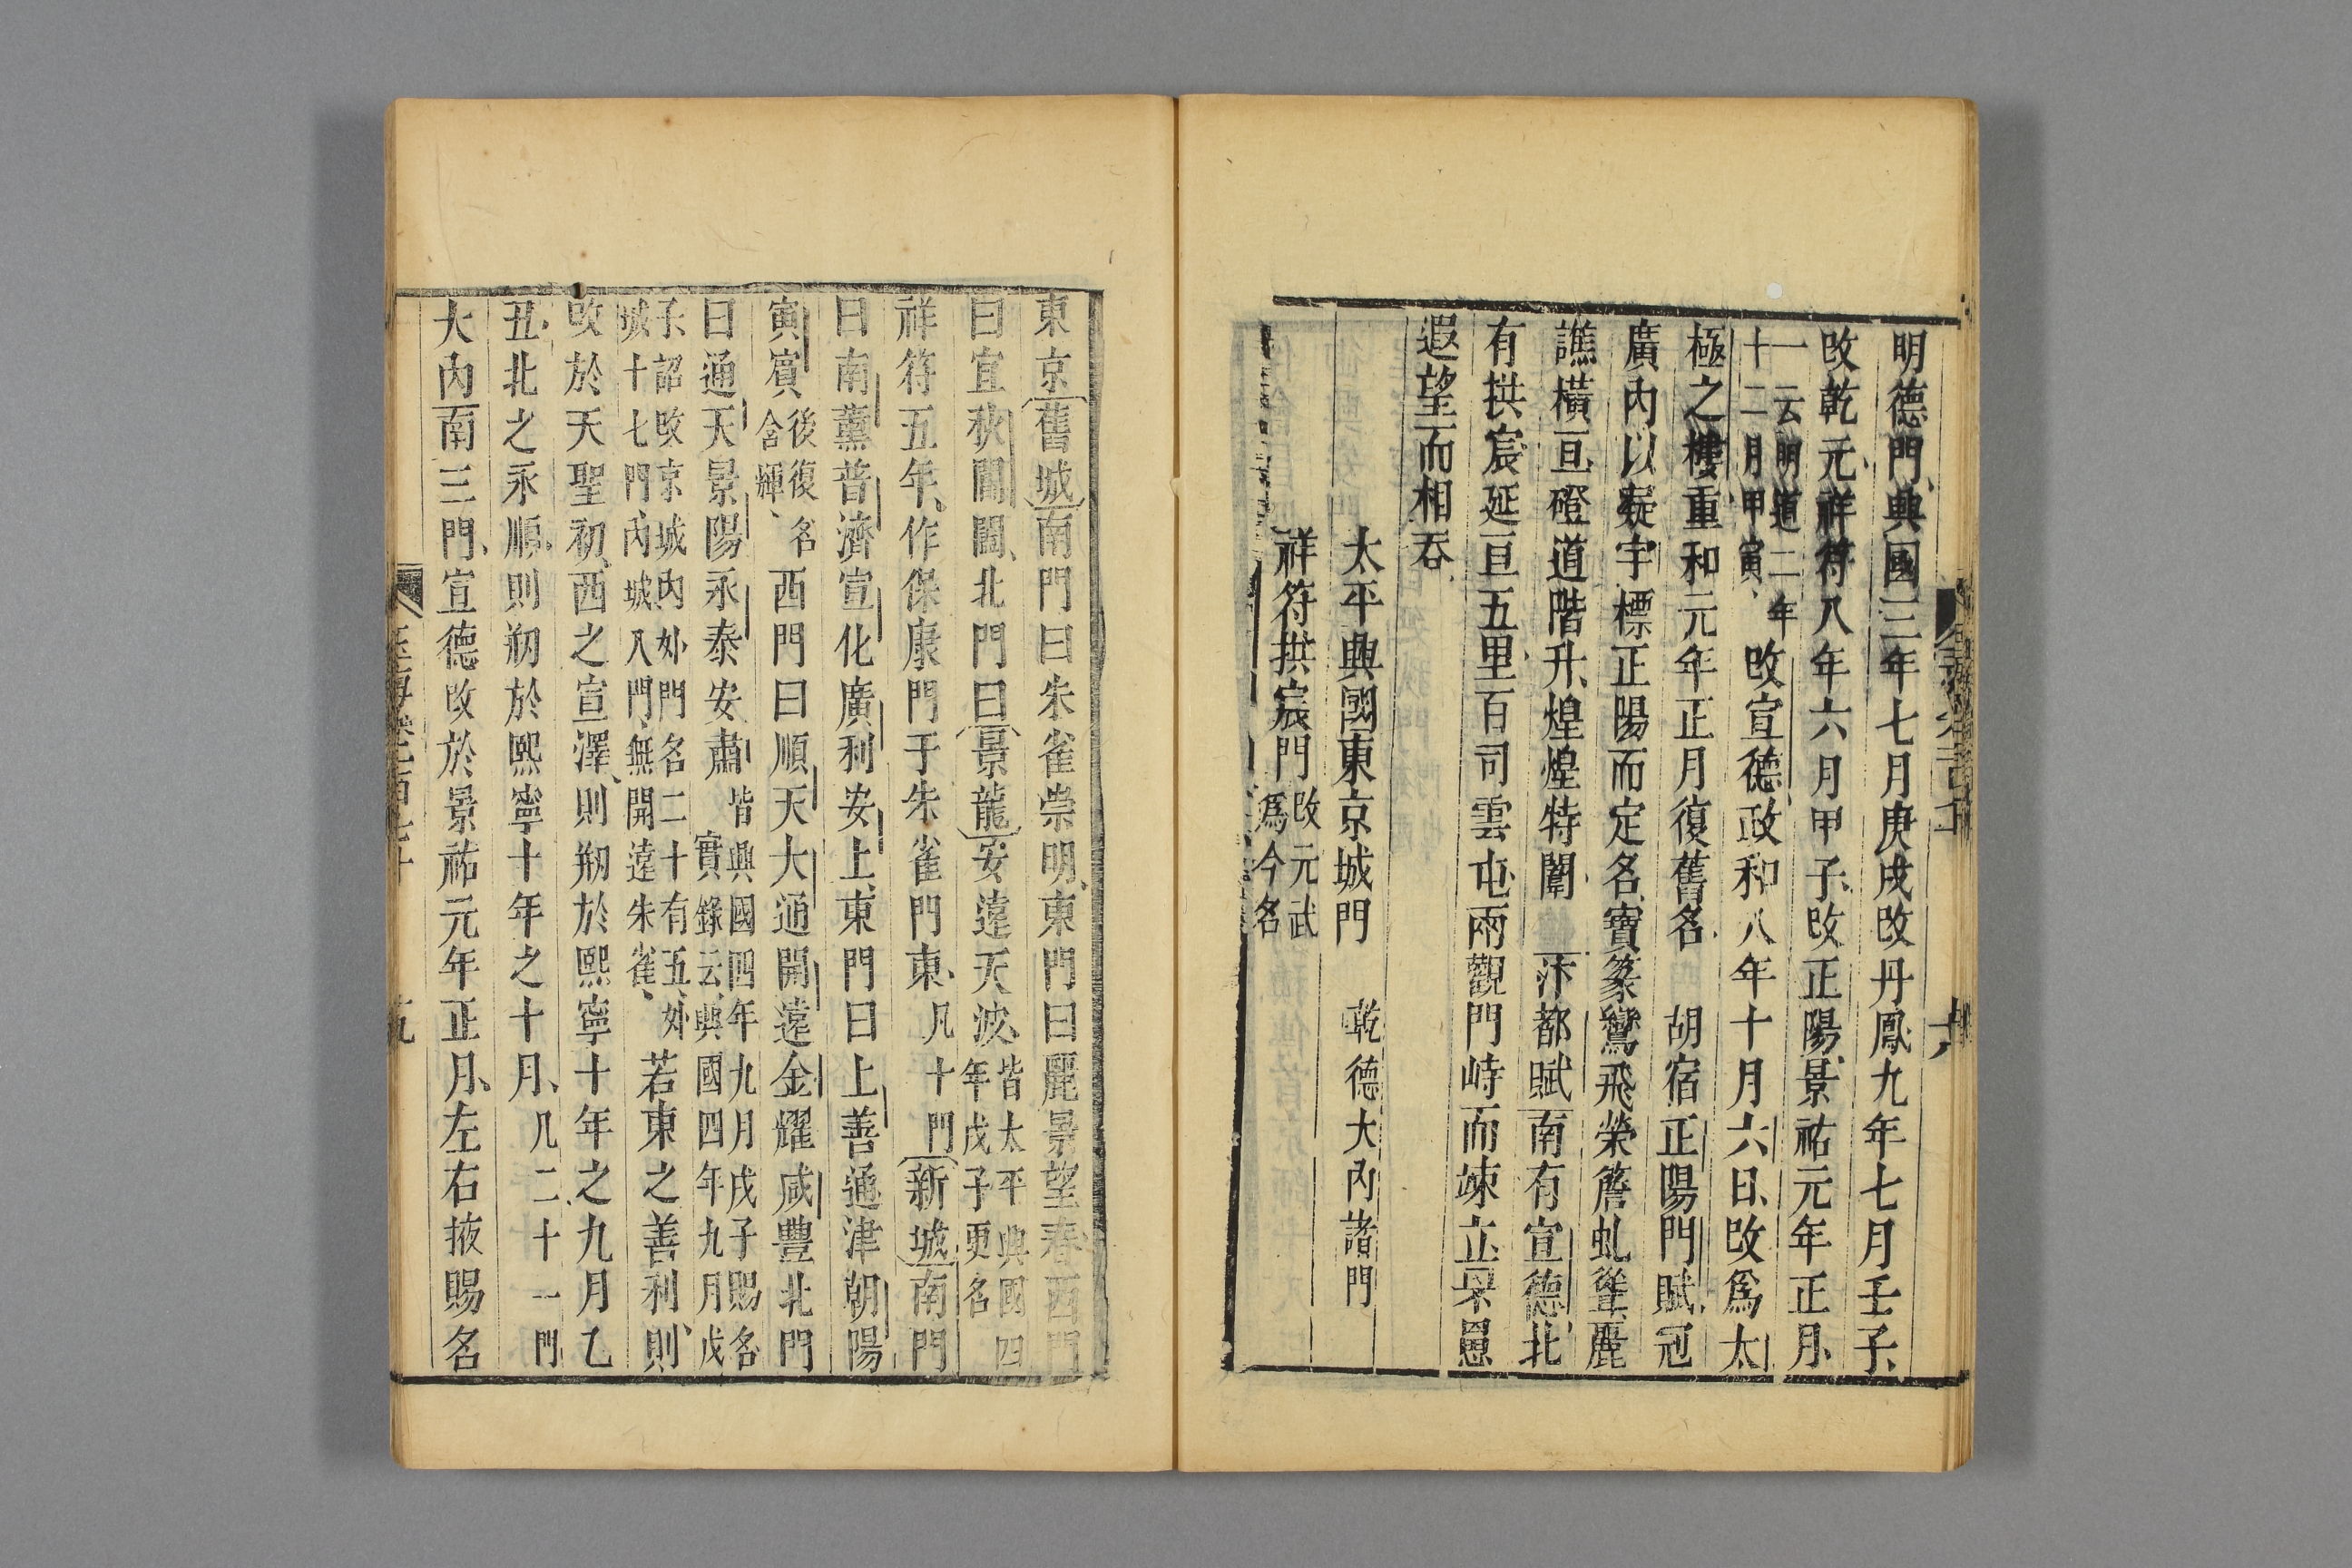 明德門興國三年七月庚戌改丹鳳九年七月壬子
改乾元祥符八年六月甲子改正陽景祐元年正月
一云明道二年十二月甲寅改宣德政和八年十月六日改爲太
極之樓重和元年正月復舊名 胡宿正陽門賦冠
廣內以凝宇標正陽而定名寶篆鸞飛榮簷虬聳麗
譙橫亘磴道階升煌煌特闈 汴都賦南有宣德北
有拱宸延亘五里百司雲屯兩觀門峙而竦立罘罳
遐望而相吞
太平興國東京城門 乾德大內諸門
祥符拱宸門改元武爲今名
東京舊城南門曰朱雀崇明東門曰麗景望春西門
曰宜秋閶闔北門曰景龍安遠天波皆太平興國四年戊子更名
祥符五年作保康門于朱雀門東凡十門新城南門
曰南薰普濟宣化廣利安上東門曰上善通津朝陽
寅賓後復名含輝西門曰順天大通開遠金耀咸豐北門
曰通天景陽永泰安肅皆興國四年九月戊子賜名實錄云興國四年九月戊
子詔改京城內外門名二十有五外城十七門內城八門無開遠朱雀若東之善利則
改於天聖初西之宣澤則刱於熙寧十年之九月乙
丑北之永順則刱於熙寧十年之十月凡二十一門
大內南三門宣德改於景祐元年正月左右掖賜名